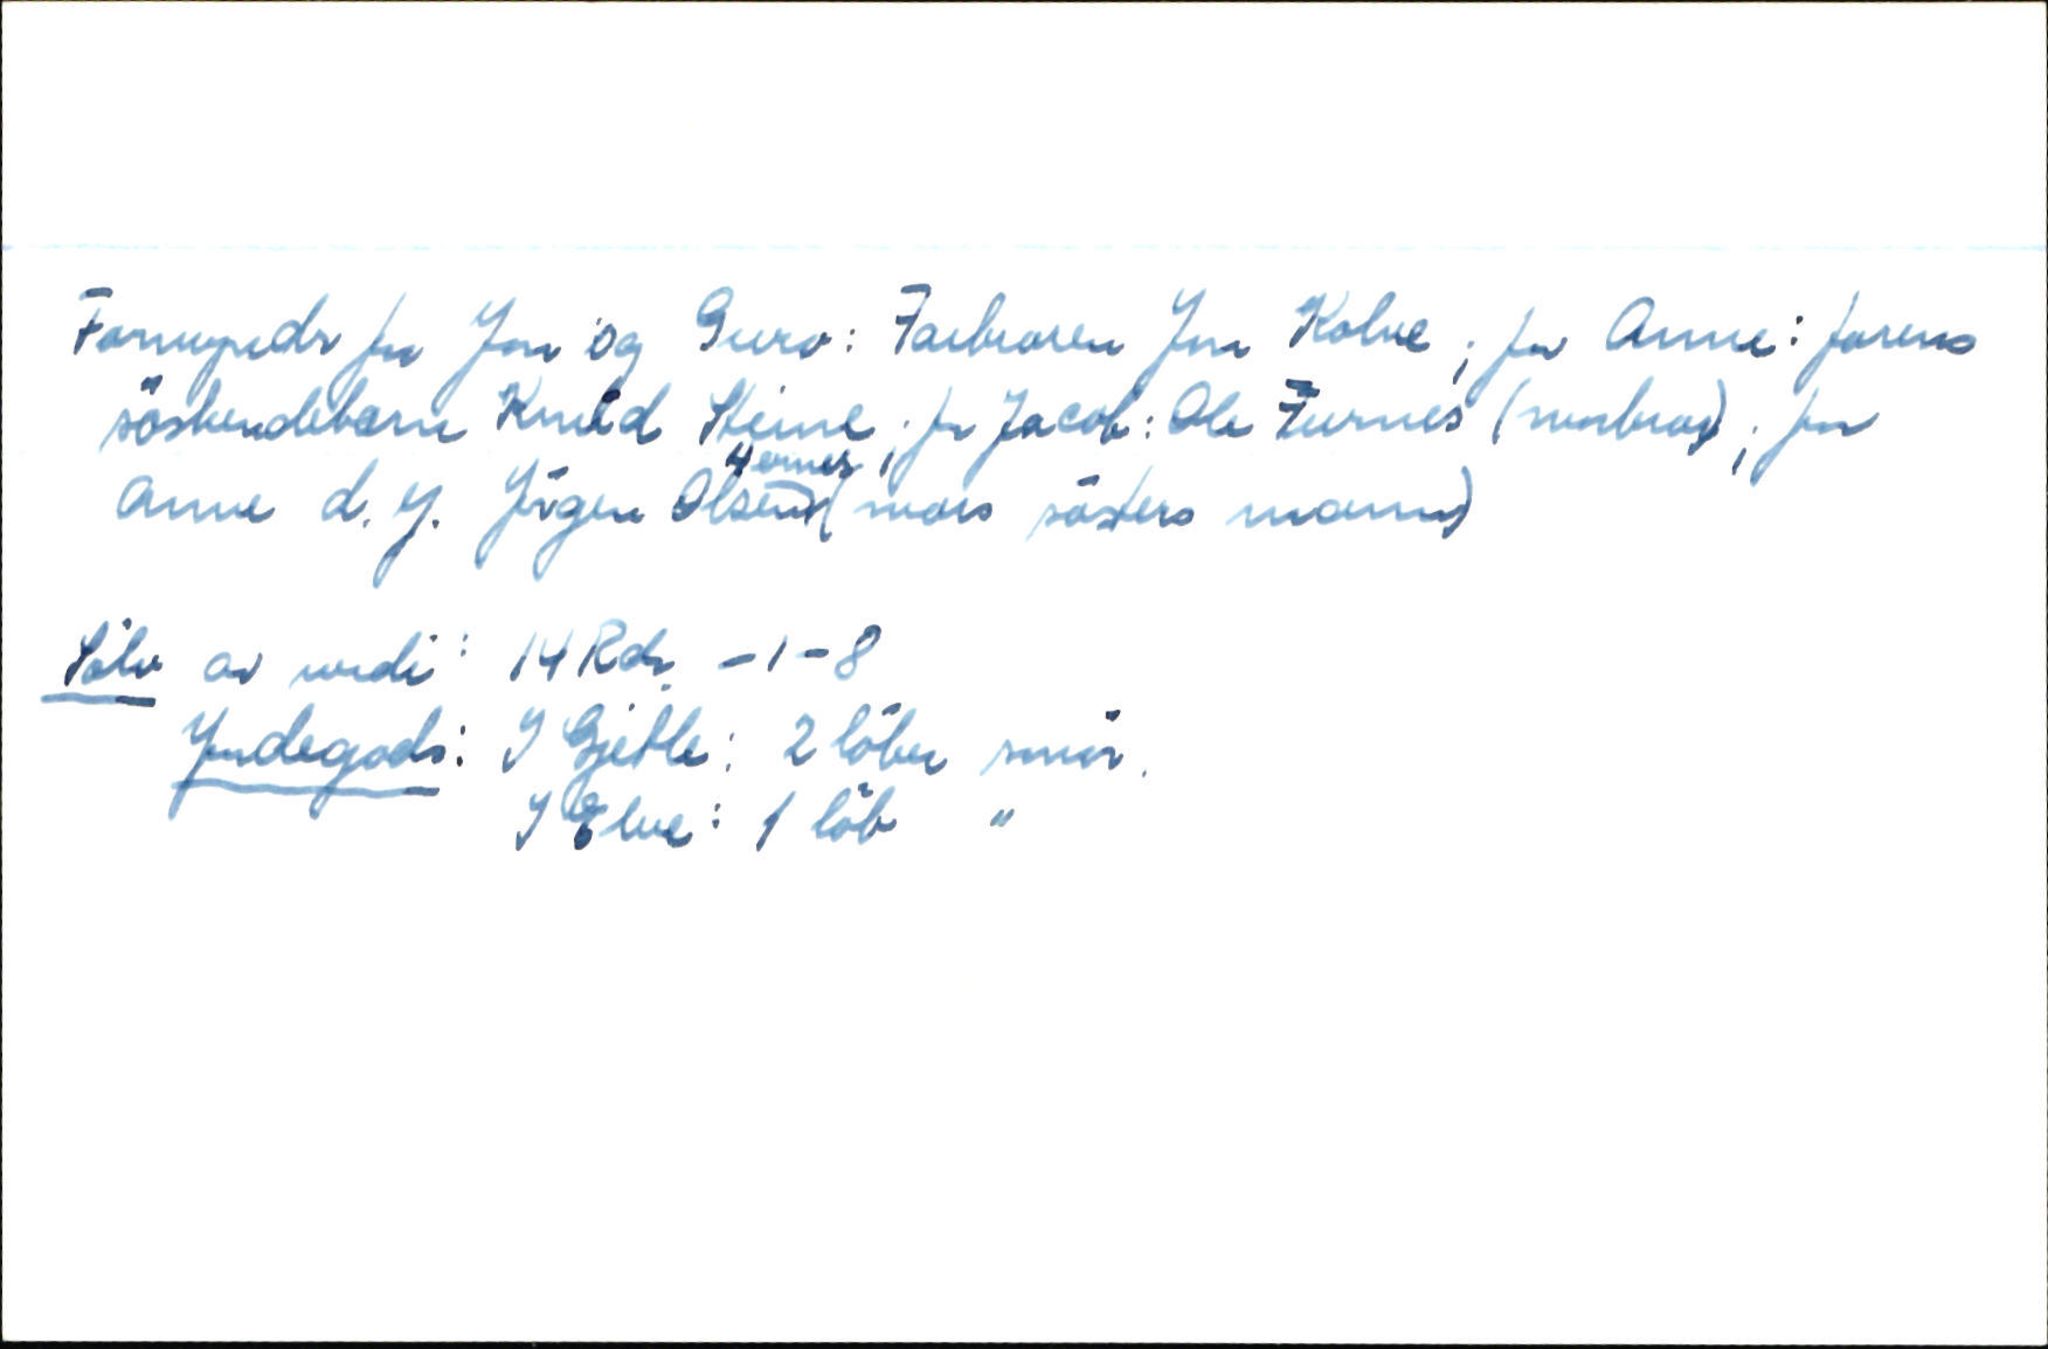 Formyndr for Jon og Guro: Farbroren Jon Kolve; for Anne: farens
söskendebarn Knud Steine; for Jacob: Ole Furnes (morbror); for
Anne d. y. Jörgen Olsen Hernes (mors sösters mann)
Sölv av verdi: 14 Rdr. -1-8
Jordegods: I Gjetle: 2 löber smör.
I Elve: 1 löb "